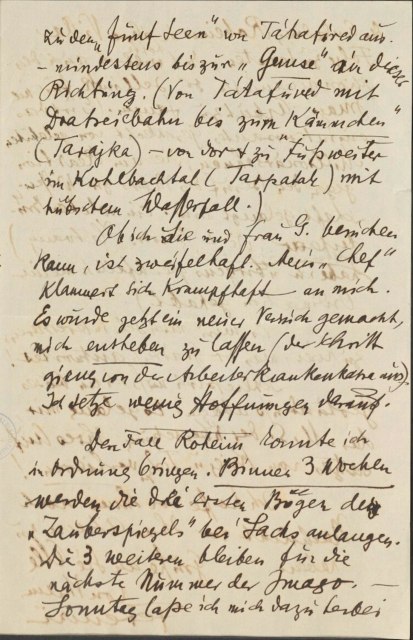 zu den „fünf Seen" von Tátrafüred aus.
– mindestens bis zur „Gemse" in dieser
Richtung. (Von Tátrafüred mit
Drahtseilbahn bis zum „Kämmchen"
(Tarajka) – von dort zu Fuß weiter
im Kohlbachtal (Tarpatak) mit
hübschem Wasserfall.)
Ob ich Sie und Frau G. besuchen
kann, ist zweifelhaft. Mein „Chef"
klammert sich krampfhaft an mich.
Es wurde jetzt ein neuer Versuch gemacht,
mich entheben zu lassen (der Schritt
gieng von der Arbeiterkrankenkasse aus).
Ich setze wenig Hoffnungen darauf.
Den Fall Roheim konnte ich
in Ordnung bringen. Binnen 3 Wochen
werden die drei ersten Bögen des
„Zauberspiegels" bei Sachs anlangen.
Die 3 weiteren bleiben für die
nächste Nummer der Imago. –
Sonntag lasse ich mich dazu herbei